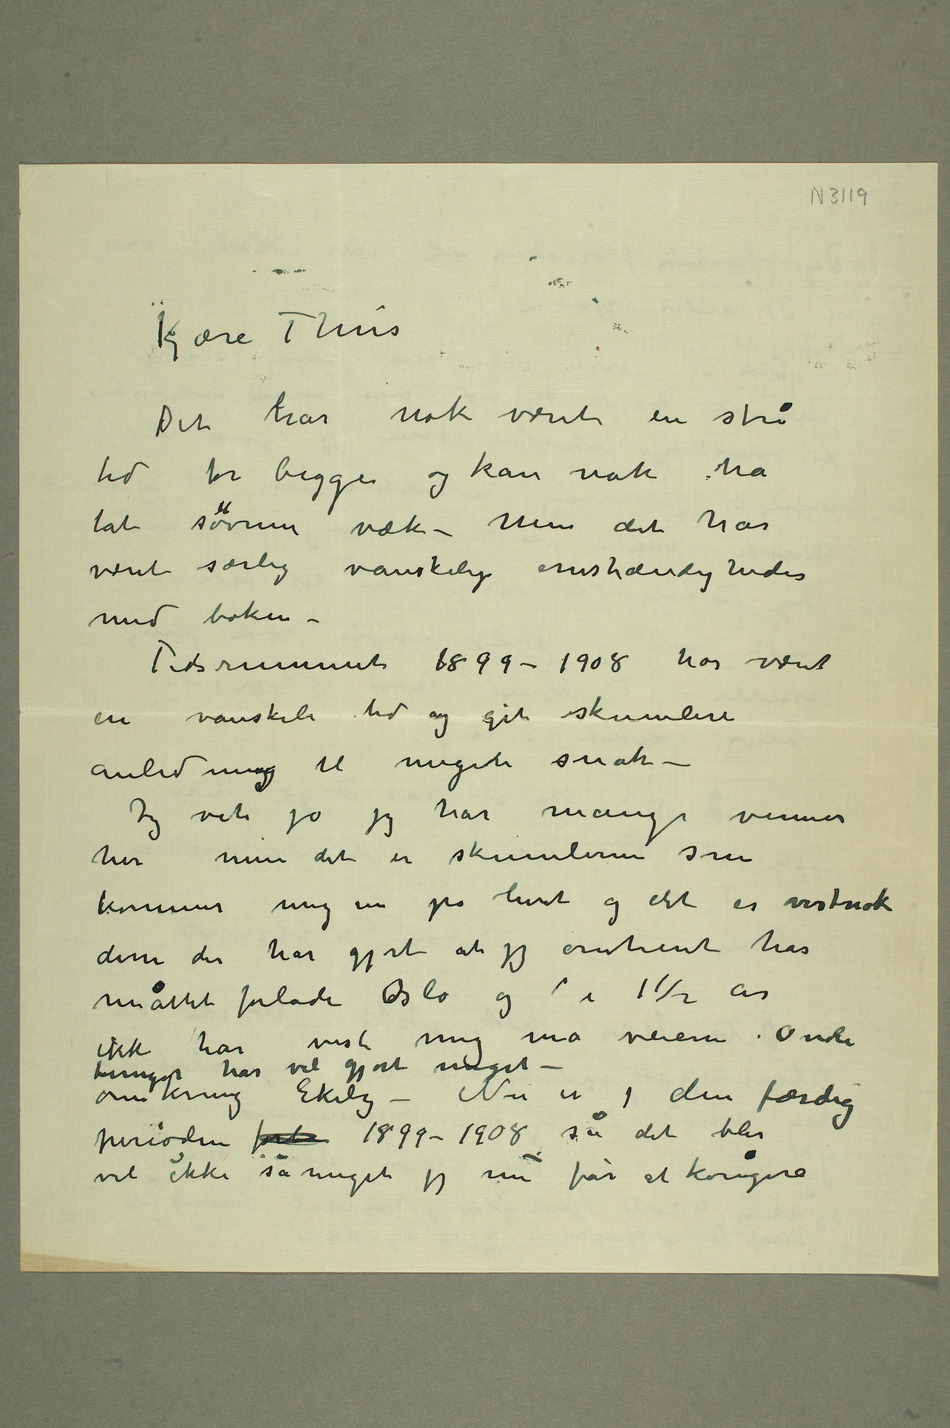 N 3119
Kjære Thiis
Det har nok været en stri
tid for begge og kan nok ha
tat søvnen væk – Men det har
været særlig vanskelige omstændigheder
med boken –
Tidsrummet 1899 – 1908 har været
en vanskeli tid og git skumlere
anledning til meget snak –
Jeg vet jo jeg har mange venner
her men det er skumlerne som
kommer mig in på livet og det er vistnok
dem der har gjort at jeg omtrent har
måttet forlade Oslo og i 1 1/2 år
ikk har vist mig på veiene Onde
tunger har vel gjort meget –
omkring Ekely – Nu er den færdig
perioden 1899 – 1908 så det blir
vel ikke så meget jeg nu får at korigere